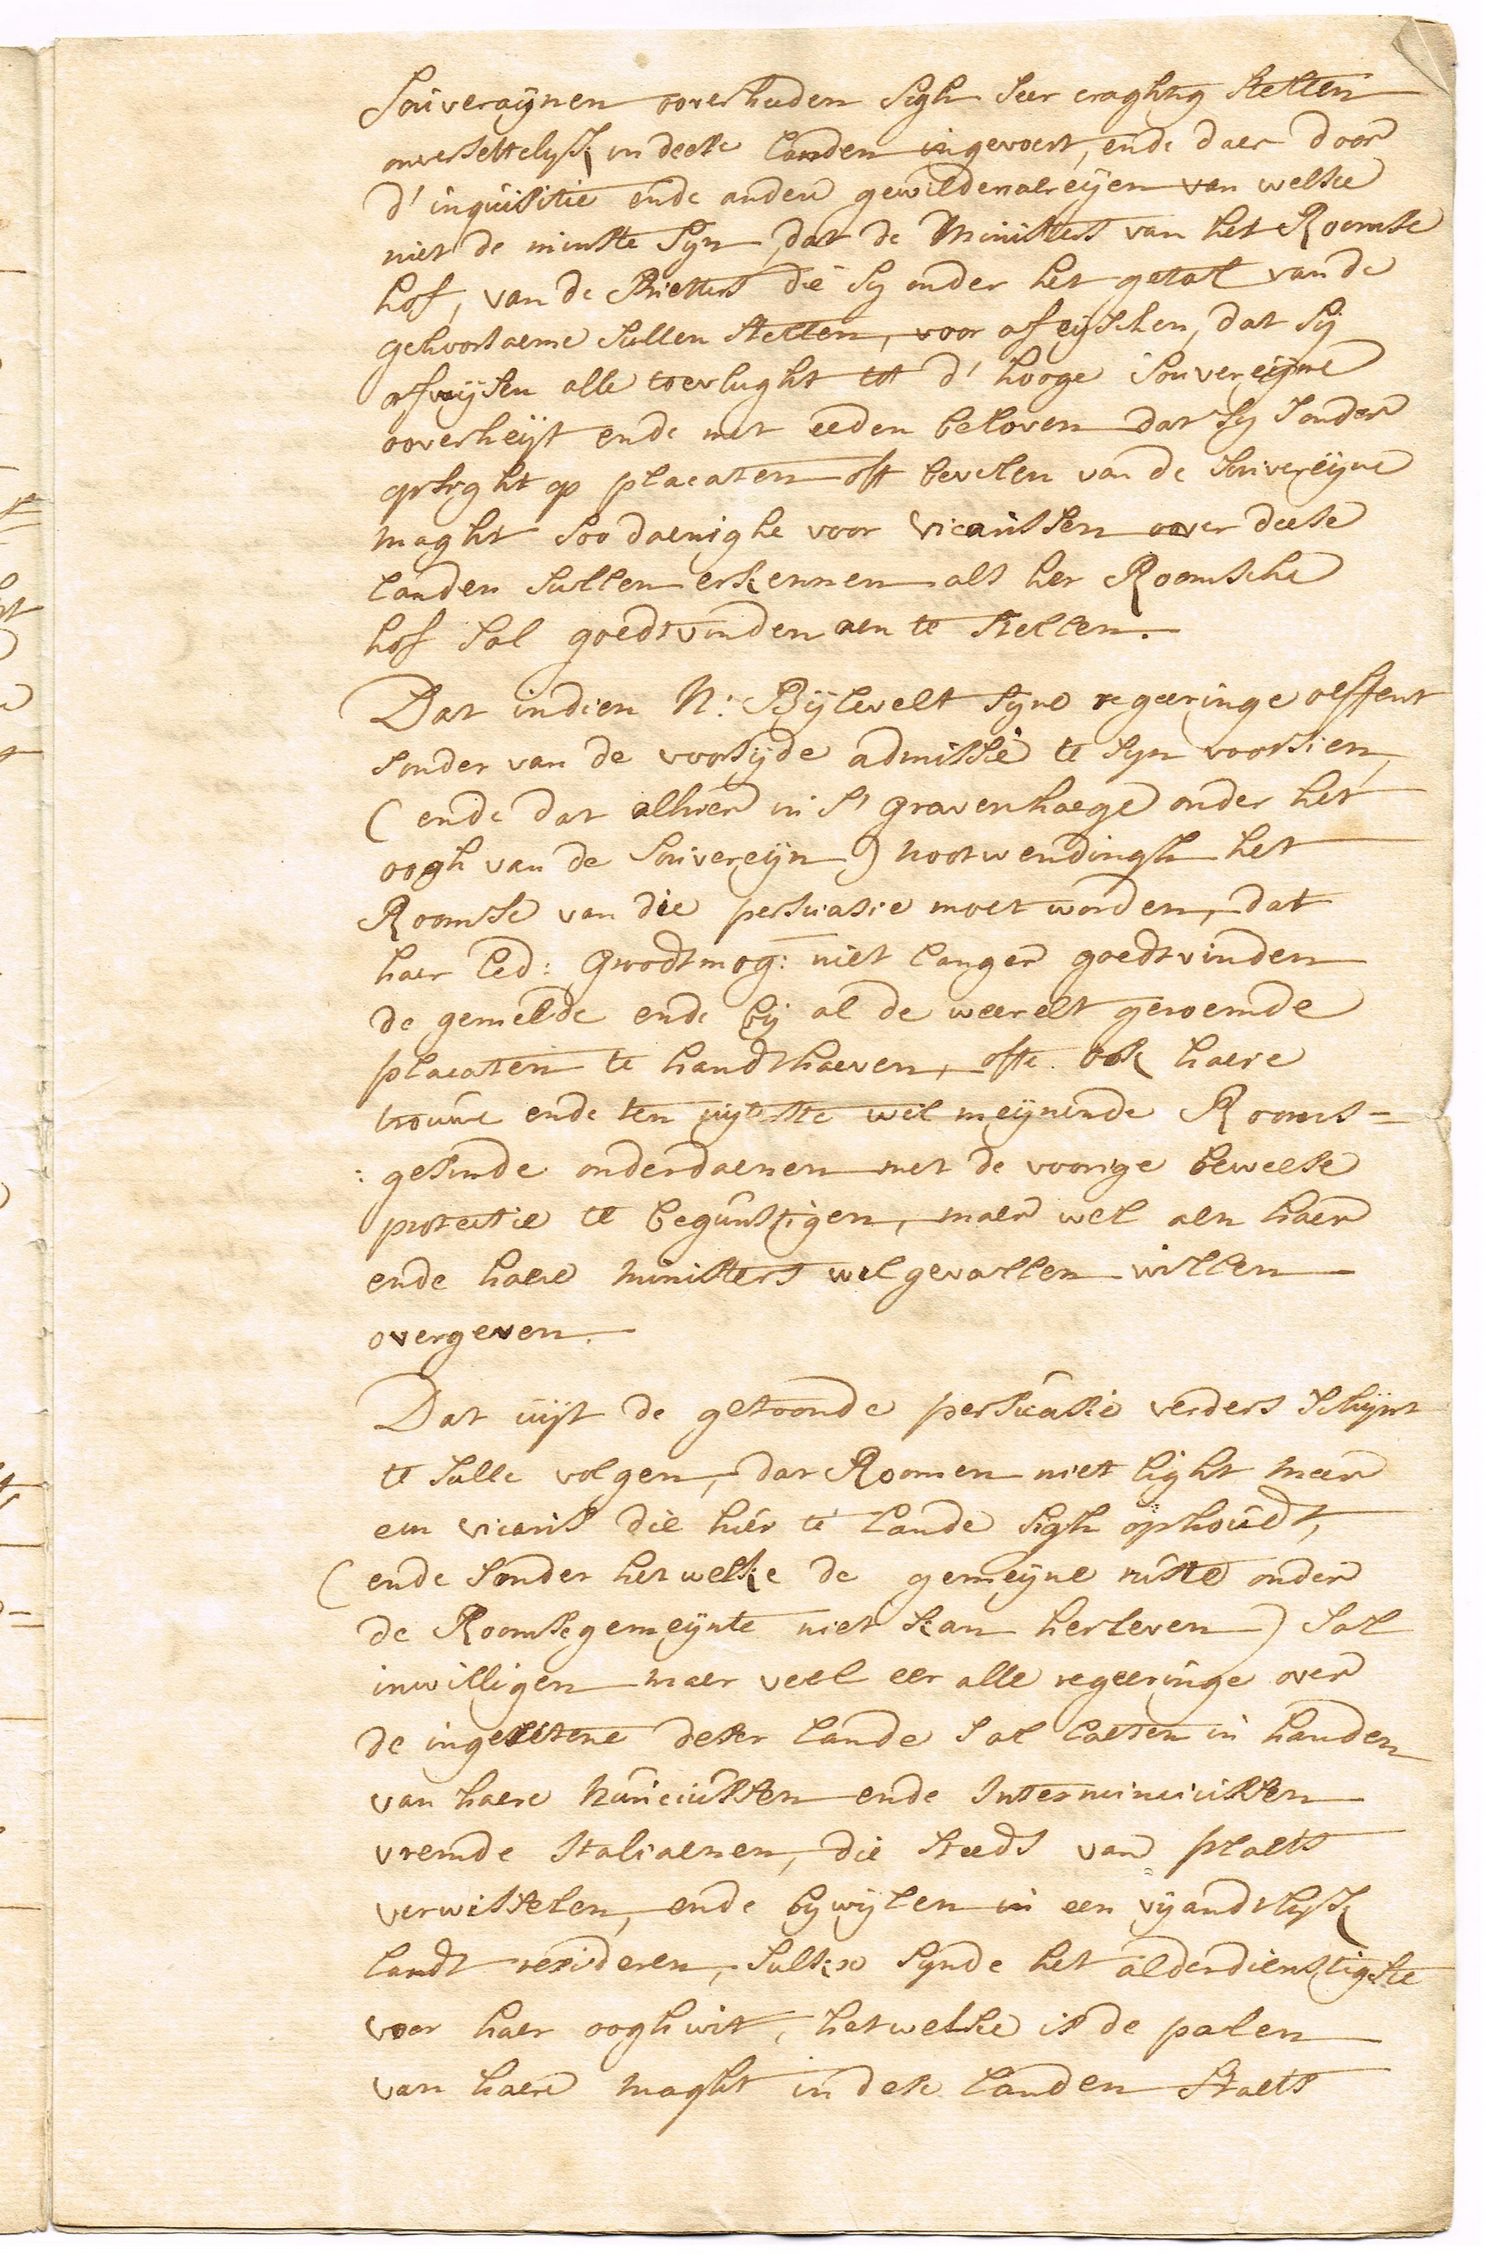 Souveraynen ooverheeden sigh seer craghtig stellen
onversettelyk in deese landen ingevoert, ende daer door
d' inquisitie ende andere gewildenaereyen van welke
niet de minste syn, dat de Ministers van het Roomse
hof, van de Priesters die sy onder het getal van de
gehoorsaeme sullen stellen, voor af eysschen, dat sy
afwysen alle toevlught tot d' hooge souvereyne
ooverheyt ende met eeden beloven dat sy sonder
opsight op placaten oft bevelen van de souvereyne
maght soodaenighe voor vicarissen oover deese
landen sullen erkennen als het Roomsche
hof sal goedtvinden aen te stellen.
Dat indien N: Bylevelt syne regeeringe oeffent
sonder van de voorsyde admissie te syn voorsien,
( ende dat alhier in S' Gravenhaege onder het
oogh van de souvereyn ) nootwendingh het
Roomse van die persuasie moet worden, dat
haer Ed: Grootmog: niet langer goedtvinden
de gemelde ende by al de weerelt geroemde
placaten te handthaeven, ofte ook haere
trouwe ende ten uyterste wel meynende Rooms=
: gesinde onderdaenen met de voorige beweese
protectie te begunstigen, maer wel aen haer
ende haere ministers welgevallen willen
overgeven.
Dat uyt de getoonde persuasie verders schynt
te sulle volgen, dat Roomen niet light meer
een vicaris die hier te lande sigh ophoudt,
( ende sonder het welke de gemeyne ruste onder
de Roomse gemeynte niet kan herleven ) sal
inwilligen maer veel eer alle regeeringe over
de ingesetene deser lande sal laeten in handen
van haere Nunciussen ende Internunciussen
vremde Italiaenen, die steeds van plaets
verwisselen, ende bywylen in een vyandtlyk
landt resideren, sulkx synde het alderdienstigste
voor haer ooghwit, het welke is de palen
van haere maght in dese landen staets